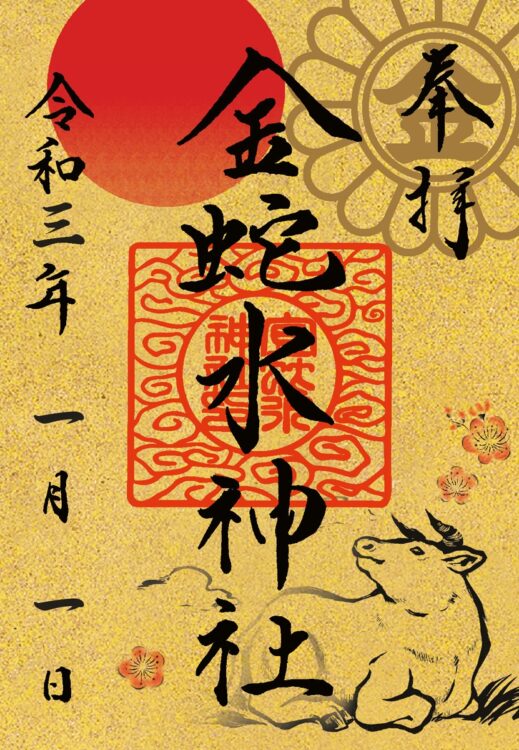 奉拝
金蛇水神社
令和三年 一月 一日
金